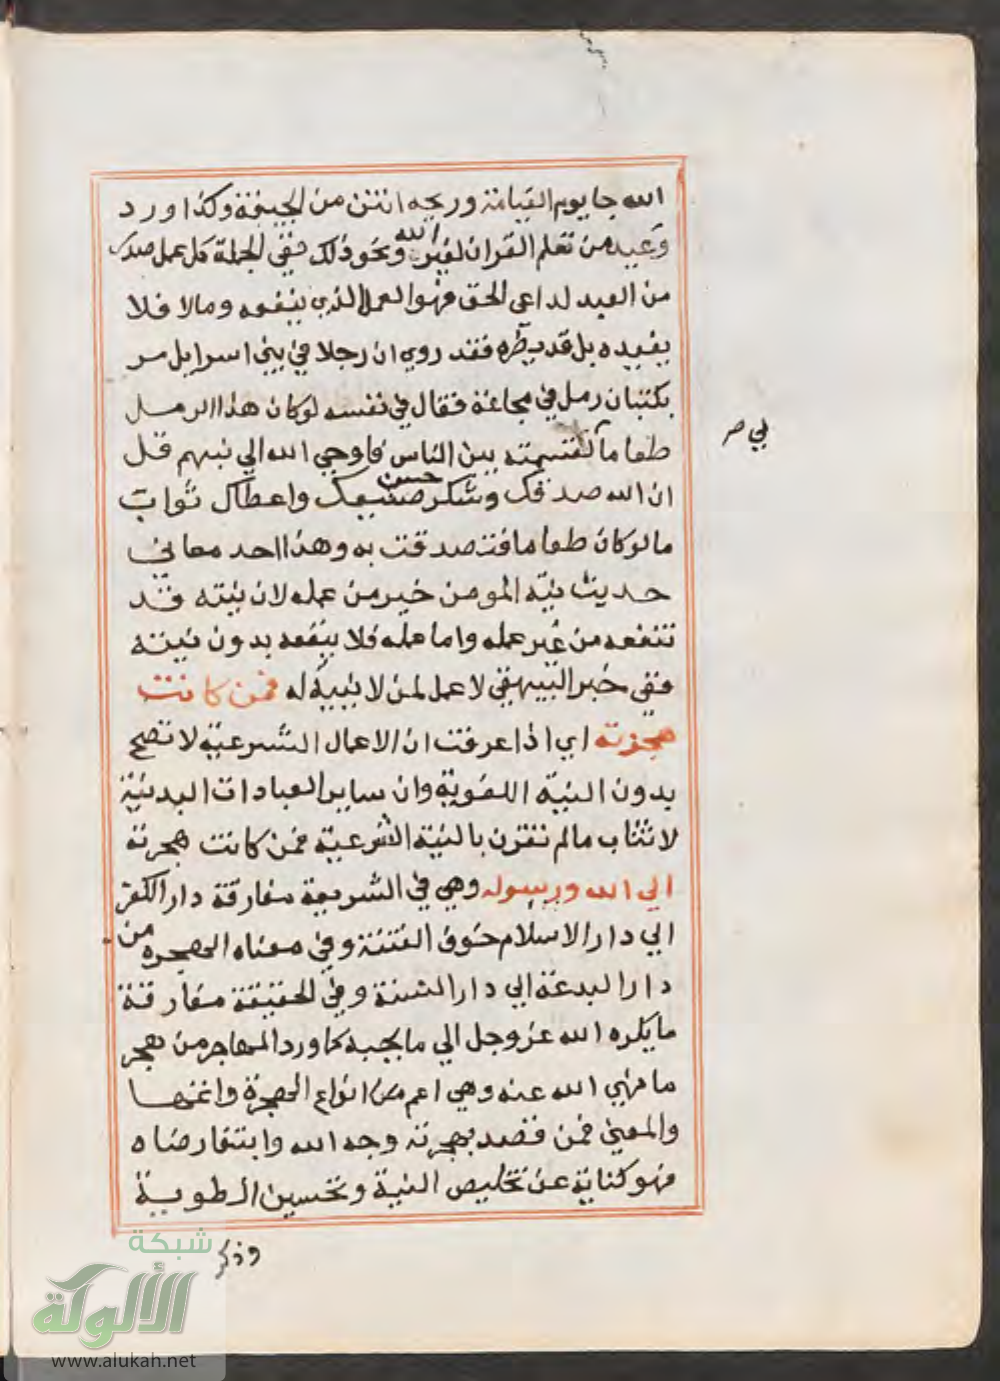 الله جا يوم القيامة وريحه انتن من الجيفة وكذا ورد
وعيد من تعلم القران لغير الله ونحو ذلك ففي الجملة كل عمل صدر
من العبد لداعي الحق فهو العمل الذي ينفعه ومالا فلا
يفيده بل قد يضره فقد روي ان رجلا في بني اسرايل مر
بكثبان رمل في مجاعة فقال في نفسه لو كان هذا الرمل
طعاما لقسمته بين الناس فاوحي الله الي نبيهم قل
ان الله صدقك وشكر حسن صنيعك واعطاك ثواب
مالوكان طعاما فتصدقت به وهذا احد معاني
حديث نية المومن خير من عمله لان نيته قد
تنفعه من غير عمله واما عمله فلا ينفعه بدون نيته
ففي خبر البيهقي لا عمل لمن لا نية له فمن كانت
هجرته اي اذا عرفت ان الاعمال الشرعية لا تصح
بدون النية اللغوية وان ساير العبادات البدنية
لا تثاب مالم تقترن بالنية الشرعية فمن كانت هجرته
الي الله ورسوله وهي في الشريعة مفارقة دار الكفر
الي دار الاسلام خوف الفتنة وفي معناه الهجرة من
دار البدعة الي دار السنة وفي الحقيقة مفارقة
مايكره الله عز وجل الي مايحبه كما ورد المهاجر من هجر
ما نهي الله عنه وهي اعم من انواع الهجرة واغمها
والمعني فمن قصد بهجرته وجه الله وابتغا رضاه
فهو كناية عن تخليص النية وتحسين الطوية
وذكر
شبكة
الألوكة
www.alukah.net